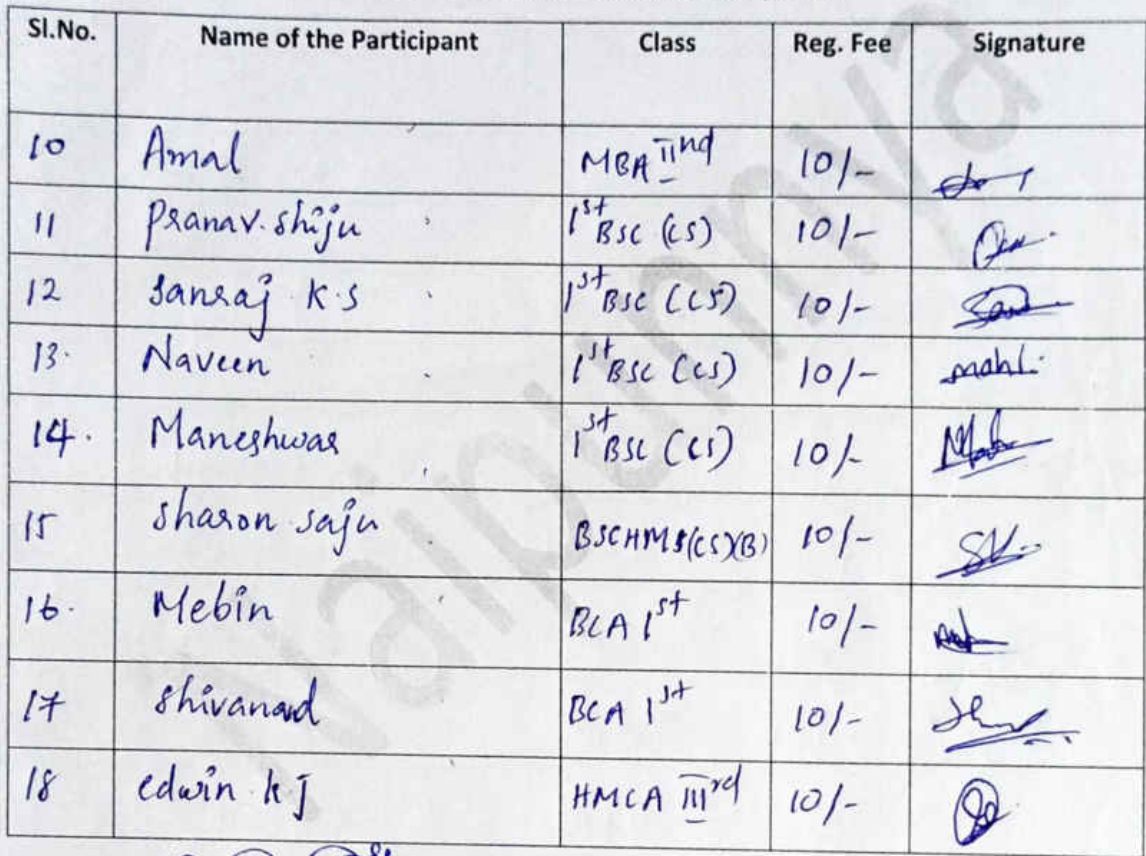 Sl.No. Name of the Participant Class Reg. Fee Signature
10 Amal MBA IInd 10/-
11 Pranav.shiju 1st BSC (CS) 10/-
12 Sanraj K.S 1st BSC (CS) 10/-
13. Naveen 1st BSC (CS) 10/- mahl.
14. Maneshwar 1st BSC (CS) 10/-
15 Sharon saju BSCHMS(CS)(B) 10/-
16. Mebin BCA 1st 10/-
17 Shivanad BCA 1st 10/-
18 edwin k J HMCA IIIrd 10/-
Naipunnya